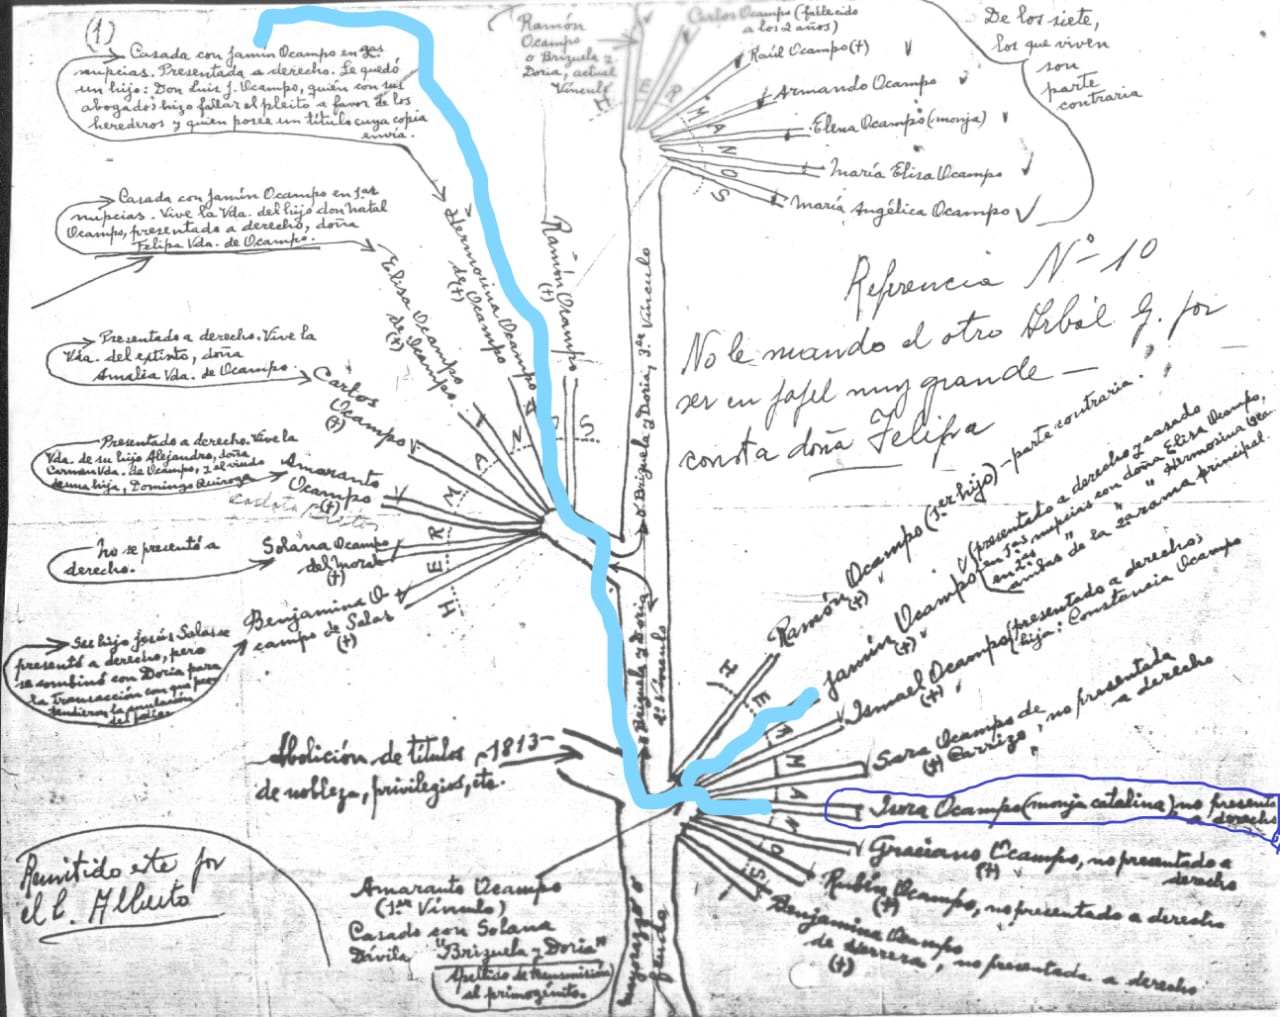 (1)
Casada con Jamín Ocampo en 2as
nupcias. Presentada a derecho. Le quedó
un hijo: Don Luis J. Ocampo, quién con sus
abogados hizo fallar el pleito a favor de los
herederos y quien posee un título cuya copia
envía.
Casada con Jamín Ocampo en 1as
nupcias. Vive la Vda. del hijo don Natal
Ocampo, presentado a derecho, doña
Felipa Vda. de Ocampo.
Presentado a derecho. Vive la
Vda. del extinto, doña
Amalia Vda. de Ocampo.
Presentado a derecho. Vive la
Vda. de su hijo Alejandro, doña
Carmen Vda. de Ocampo, y el viudo
de una hija, Domingo Quiroga
No se presentó a
derecho.
Su hijo Jesús Salas se
presentó a derecho, pero
se combinó con Doria para
la transacción con que
la anulación
del fallo.
Ramón Ocampo
(+)
Hermosina Ocampo
de Ocampo
(+)
Elisa Ocampo
de Ocampo
(+)
Carlos
Ocampo
(+)
Amaranto
Ocampo
(+)
Solana Ocampo
del Moral
(+)
Benjamina O-
campo de Salas
(+)
HERMANOS
Ramón
Ocampo
o Brizuela y
Doria, actual
Vínculo
Carlos Ocampo (fallecido
a los 2 años)
Raúl Ocampo (+)
Armando Ocampo
Elena Ocampo (monja)
María Elisa Ocampo
María Angélica Ocampo
HERMANOS
De los siete,
los que viven
son
parte
contraria
Referencia Nº 10
No le mando el otro Arbol G. por
ser en papel muy grande —
consta doña Felipa
o Brizuela y Doria, 3er Vínculo
o Brizuela y Doria
2º Vínculo
Ramón Ocampo (1er hijo) - parte contraria.
(+)
Jamín Ocampo (presentado a derecho y casado
en 1as nupcias con doña Elisa Ocampo,
en 2as " " " Hermosina Oca.
ambas de la 2a rama principal.
(+)
Ismael Ocampo (presentado a derecho;
hija: Constancia Ocampo
(+)
Sara Ocampo de
Carrizo, no presentada
a derecho
(+)
Isora Ocampo (monja catalina) no presentó
a derecho
Graciano Ocampo, no presentado a
derecho
(+)
Rubén Ocampo, no presentado a derecho
(+)
Benjamina Ocampo
de Herrera, no presentada a derecho
(+)
HERMANOS
Abolición de títulos 1813-
de nobleza, privilegios, etc.
Remitido este por
el C. Alberto
Amaranto Ocampo
(1er Vínculo)
Casado con Solana
Dávila "Brizuela y Doria"
Apellido de transmisión
al primogénito.
Mayorazgo o
feudo